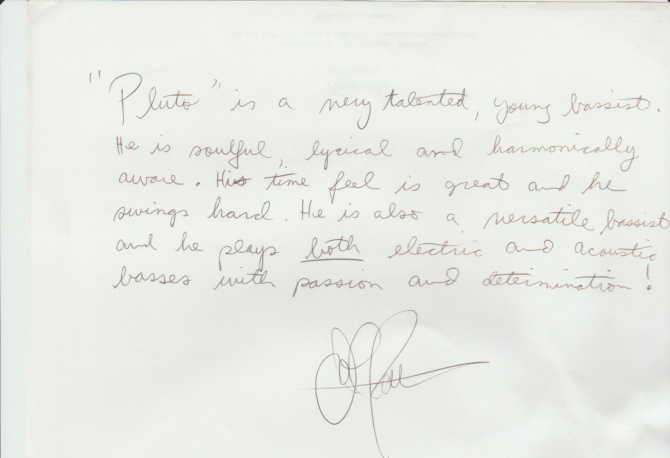 "Pluto" is a very talented, young bassist.
He is soulful, lyrical and harmonically
aware. His time feel is great and he
swings hard. He is also a versatile bassist
and he plays both electric and acoustic
basses with passion and determination!